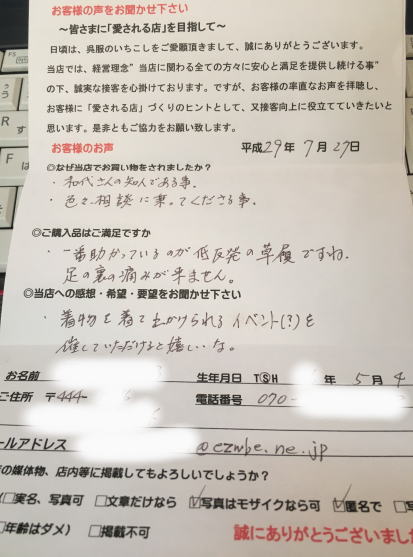 お客様の声をお聞かせ下さい
～皆さまに「愛される店」を目指して～
日頃は、呉服のいちこしをご愛顧頂きまして、誠にありがとうございます。
当店では、経営理念”当店に関わる全ての方々に安心と満足を提供し続ける事”
の下、誠実な接客を心掛けております。ですが、お客様の率直なお声を拝聴し、
お客様に「愛される店」づくりのヒントとして、又接客向上に役立てていきたいと
思います。是非ともご協力をお願い致します。
お客様のお声 平成29年7月27日
◎なぜ当店でお買い物をされましたか？
・和代さんの知人である事.
・色々相談に乗ってくださる事.
◎ご購入品はご満足ですか
・一番助かっているのが低反発の草履ですね.
足の裏の痛みが来ません。
◎当店への感想・希望・要望をお聞かせ下さい
・着物を着て出かけられるイベント(?)を
催していただけると嬉しいな。
お名前 生年月日 TⓈH 年5月4
ご住所 〒444- 電話番号 070-
ールアドレス @ezwbe.ne.jp
の媒体物、店内等に掲載してもよろしいでしょうか？
(□実名、写真可 □文章だけなら ☑写真はモザイクなら可 ☑匿名で □写
年齢はダメ) □掲載不可 誠にありがとうございまし